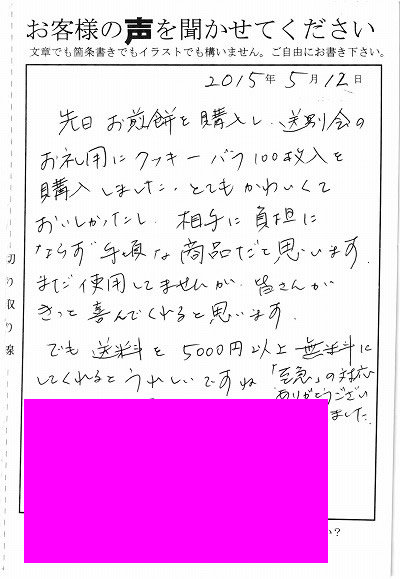 お客様の声を聞かせてください
文章でも箇条書きでもイラストでも構いません。ご自由にお書き下さい。
2015年5月12日
先日お煎餅を購入し、送別会の
お礼用にクッキーバラ100枚入を
購入しました。とてもかわいくて
おいしかったし、相手に負担に
ならず手頃な商品だと思います。
まだ使用してませんが、皆さんが
きっと喜んでくれると思います。
でも送料を5000円以上無料に
してくれるとうれしいですね
「至急」の対応
ありがとうござい
ました。
切り取り線
い?